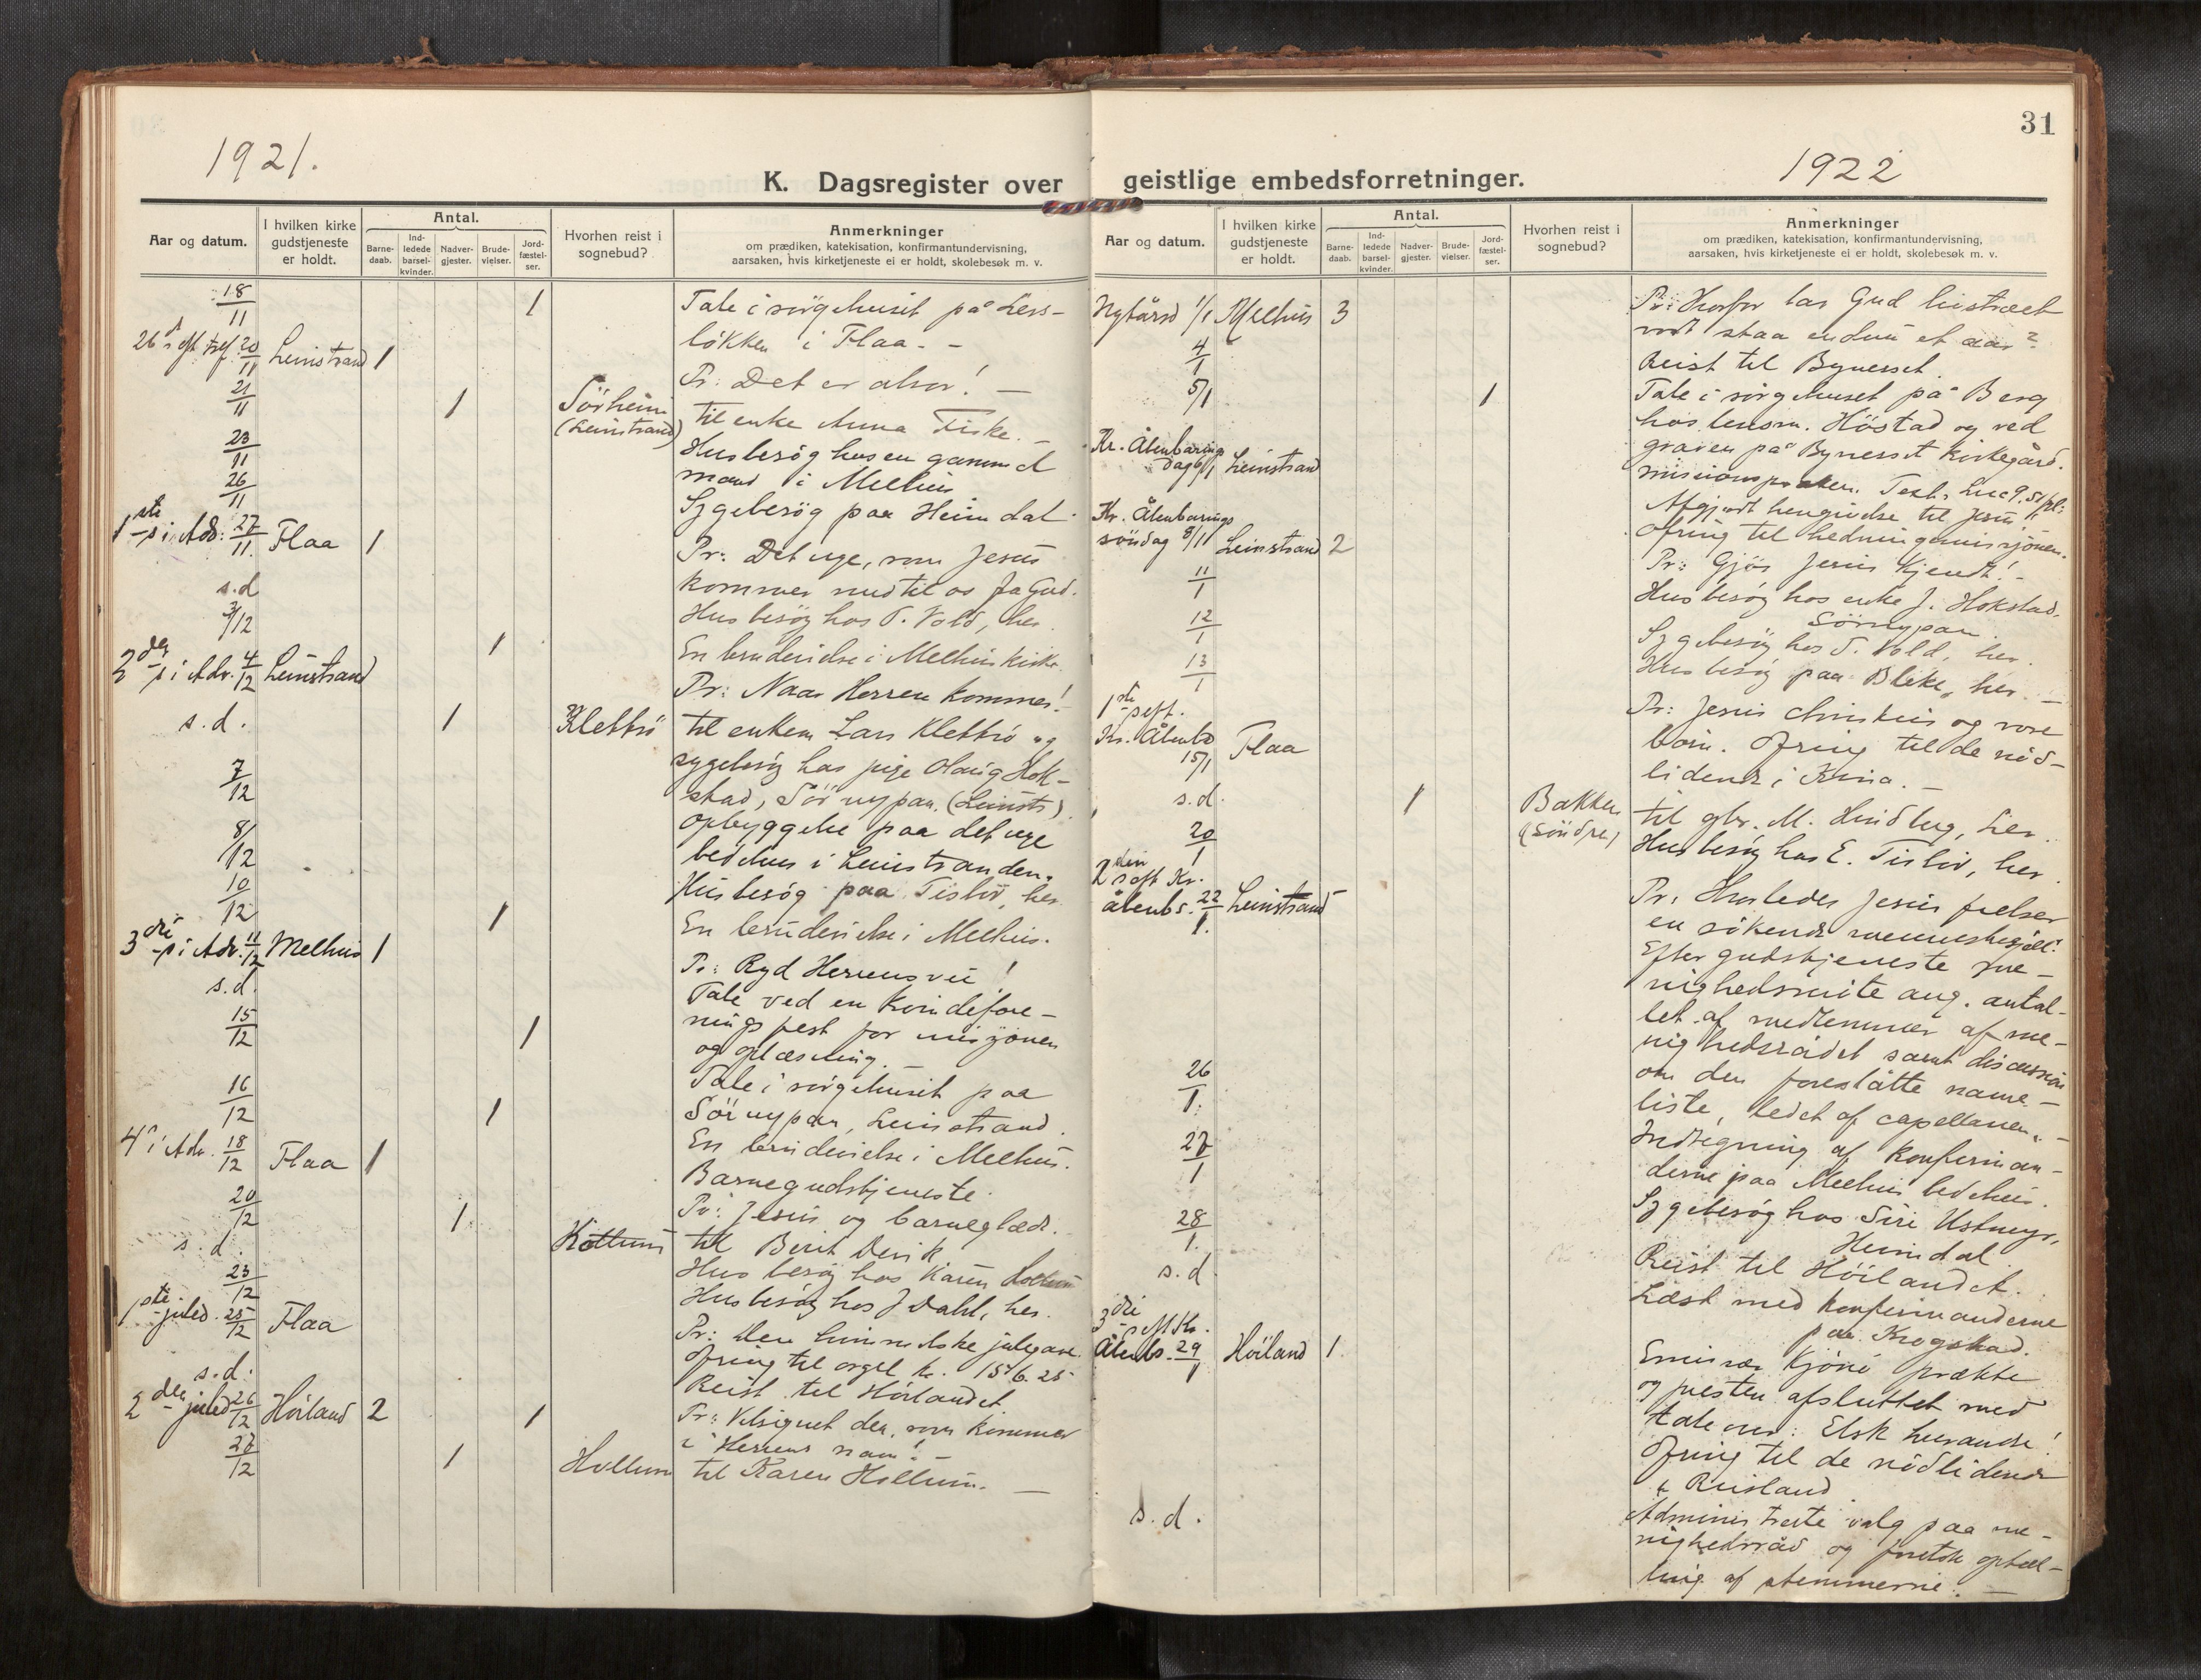 31
1921.
1922
K. Dagsregister over geistlige embedsforretninger.
Aar og datum.
I hvilken kirke gudstjeneste er holdt.
Antal.
Barnedaab.
Indledede barselkvinder.
Nadvergjester.
Brudevielser.
Jordfæstelser.
Hvorhen reist i sognebud?
Anmerkninger
om prædiken, katekisation, konfirmantundervisning,
aarsaken, hvis kirketjeneste ei er holdt, skolebesøk m. v.
18/11 1 Tale i sörgehuset på Less-
løkken i Flaa. -
26 s. eft. tref. 20/11 Leinstrand 1 Pr: Det er alvor! -
21/11 1 Sörheim (Leinstrand) til enke Anna Fiske. -
23/11 Husbesög hos en gammel
mand i Melhus
26/11 Sygebesög paa Heimdal.
1ste s. i Adv. 27/11. Flaa 1 Pr: Det nye, som Jesus
kommer med til os fra Gud.
s.d Husbesög hos S. Vold, her.
3/12 1 En brudevielse i Melhus kirke.
2den s. i Adv. 4/12 Leinstrand Pr: Naar Herren kommer! -
s.d. 1 Klettrö til enkem Lars Klettrö og
sygebesög hos pige Olaug Hok-
stad, Sörnypan. (Leinstr)
7/12 Opbyggelse paa det nye
bedehus i Leinstranden.
8/12 Husbesög paa Tisløv, her
10/12 1 En brudevielse i Melhus.
3die s. i Adv. 11/12 Melhus 1 Pr: Ryd Herrens vei!
s.d. Tale ved en kvindefore-
nings fest for misjonen
og oplæsning.
15/12 1 Tale i sörgehuset paa
Sörnypan, Leinstrand.
16/12 1 En brudevielse i Melhus.
Barnegudstjeneste.
4 s. i Adv. 18/12 Flaa 1 Pr: Jesus og barneglæde.
20/12 1 Kottum til Berit Devik
s.d. Husbesög hos Karen Hollum
23/12 Husbesög hos J Dahl, her.
1ste juled. 25/12 Flaa Pr: Den himmelske julegave.
Ofring til orgel kr. 156.25
s.d. Reist til Höilandet
2den juled 26/12 Höiland 2 1 Pr: Velsignet den, som kommer
i Herrens navn! -
27/12 1 Hollum til Karen Hollum. -
K. Dagsregister over geistlige embedsforretninger.
Aar og datum.
I hvilken kirke gudstjeneste er holdt.
Antal.
Barnedaab.
Indledede barselkvinder.
Nadvergjester.
Brudevielser.
Jordfæstelser.
Hvorhen reist i sognebud?
Anmerkninger
om prædiken, katekisation, konfirmantundervisning,
aarsaken, hvis kirketjeneste ei er holdt, skolebesøk m. v.
Nytårsd 1/1 Melhus 3 Pr: Hvorfor lar Gud livstræet
vort staa endnu et aar?
4/1 Reist til Bynesset.
5/1 1 Tale i sörgehuset på Berg
hos lensm. Höstad og ved
graven på Bynesset kirkegård.
Kr. Åbenbarings dag 6/1 Leinstrand misionspræken. Text: Luc 9, 51 fl:
Afgjort hengivelse til Jesus.
Ofring til hedningemisjonen.
Kr. Åbenbarings söndag 8/1 Leinstrand 2 Pr: Gjör Jesus kjendt! -
11/1 Husbesög hos enke J. Hokstad,
Sörnypan.
12/1 Sygebesög hos S. Vold, her.
13/1 Husbesög paa Bleke, her. -
1ste s. eft. Kr. Åbenb 15/1 Flaa Pr: Jesus Christus og vore
börn. Ofring til de nöd-
lidende i Kina. -
s.d. 1 Bakken (söndre) til gbr. M. Lindberg, her
20/1 Husbesög hos E. Tisløv, her.
2den s. eft Kr. åbenb s. 22/1. Leinstrand Pr: Hvorledes Jesus frelser
en sökende menneskesjæl.
Efter gudstjeneste me-
nighedsmöte ang. antal-
let af medlemmer af me-
nighedsrådet samt discussion
om den foreslåtte navne-
liste, ledet af capellanen. -
26/1. Indtegning af konfirman-
derne paa Melhus bedehus.
27/1 Sygebesög hos Siri Ustmyr,
Heimdal.
28/1. Reist til Höilandet.
s.d. Læst med konfirmanderne
paa Krogstad.
3die s. eft Kr. Åbenb. 29/1 Höiland 1 Emissær Kjönö prækte
og presten afsluttet med
tale om: Elsk hverandre!
Ofring til de nödlidende
i Rusland.
s.d. Administrerte valg paa me-
nighedsråd og foretok optæl-
ling af stemmerne. -